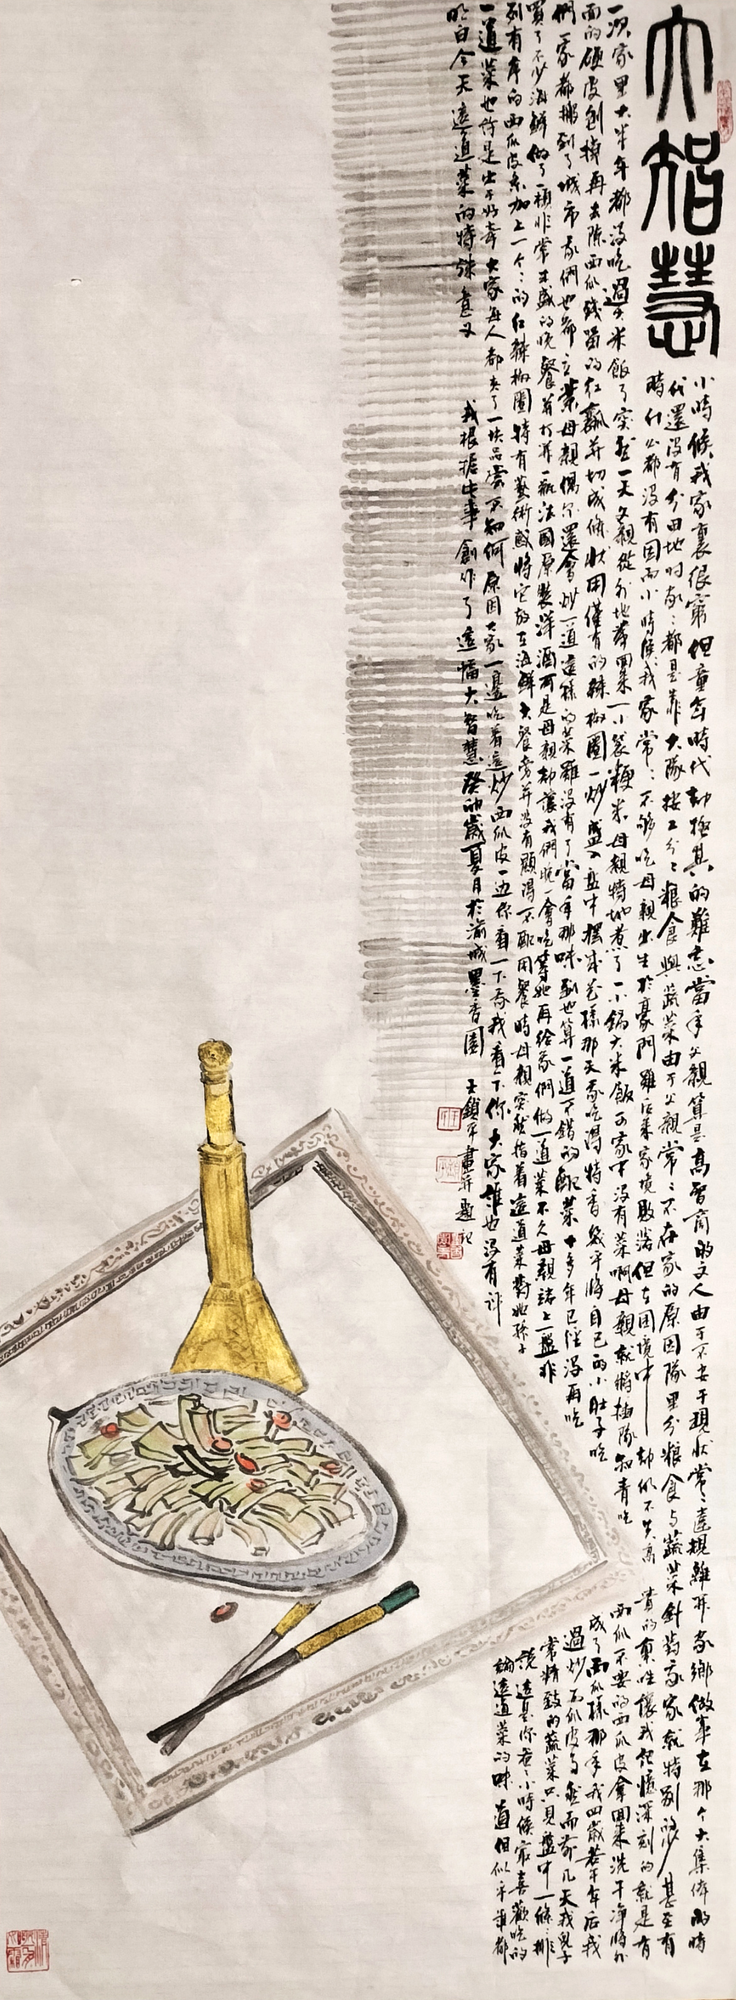 大智慧
小時候我家裏很窮但童年時代却極其的難忘當年父親算是高智商的文人由于不安于現狀常々違規離開家鄉做事在那个大集体的時
代還没有分田地时家々都是靠大隊按工分々粮食與蔬菜由于父親常々不在家的原因隊里分粮食与蔬菜針对我家就特别的少甚至有
時什么都没有因而小時候我家常々不够吃母親出生於豪門雖后来家境敗落但在困境中却仍不失高貴的真性讓我記憶深刻的就是有
一次家里大半年都没吃過大米飯了突然一天父親從外地带回来一小袋粳米母親特地煮了一小鍋大米飯可家中没有菜啊母親就將插隊知青吃西瓜不要的西瓜皮拿回来洗干净將外
面的硬皮刨掉再去除西瓜残留的红瓤并切成條状用僅有的辣椒圈一炒盛入盘中摆成花樣那天我吃得特香幾乎將自己的小肚子吃成了西瓜樣那年我四歲若干年后我
們一家都挪到了城市我們也都立業母親偶尔還會炒一道這樣的菜雖没有了當年那味到也算一道不错的配菜十多年已經没再吃過炒西瓜皮与然而前几天我兒子
買了不少海鮮做了一顿非常丰盛的晚餐并打开一瓶法國原裝洋酒可是母親却讓我們晚一會吃等她再给我們做一道菜不久母親端上一盘非常精致的蔬菜只見盘中一條々排
列有序的西瓜皮条加上一个々的红辣椒圈特有藝術感將它放在海鮮大餐旁并没有顯得不配用餐時母親突然指着這道菜對她孫子説這是你爸小時候最喜歡吃的
一道菜也許是出于好奇大家每人都夹了一块品嘗不知何原因大家一邊吃着這炒西瓜皮一边你看一下我我看一下你大家誰也没有評論這道菜的味道但似乎誰都
明白今天這道菜的特殊意义 我根据此事創作了這幅大智慧癸卯歲夏月於渝城墨香園 王鎖平畫并題記